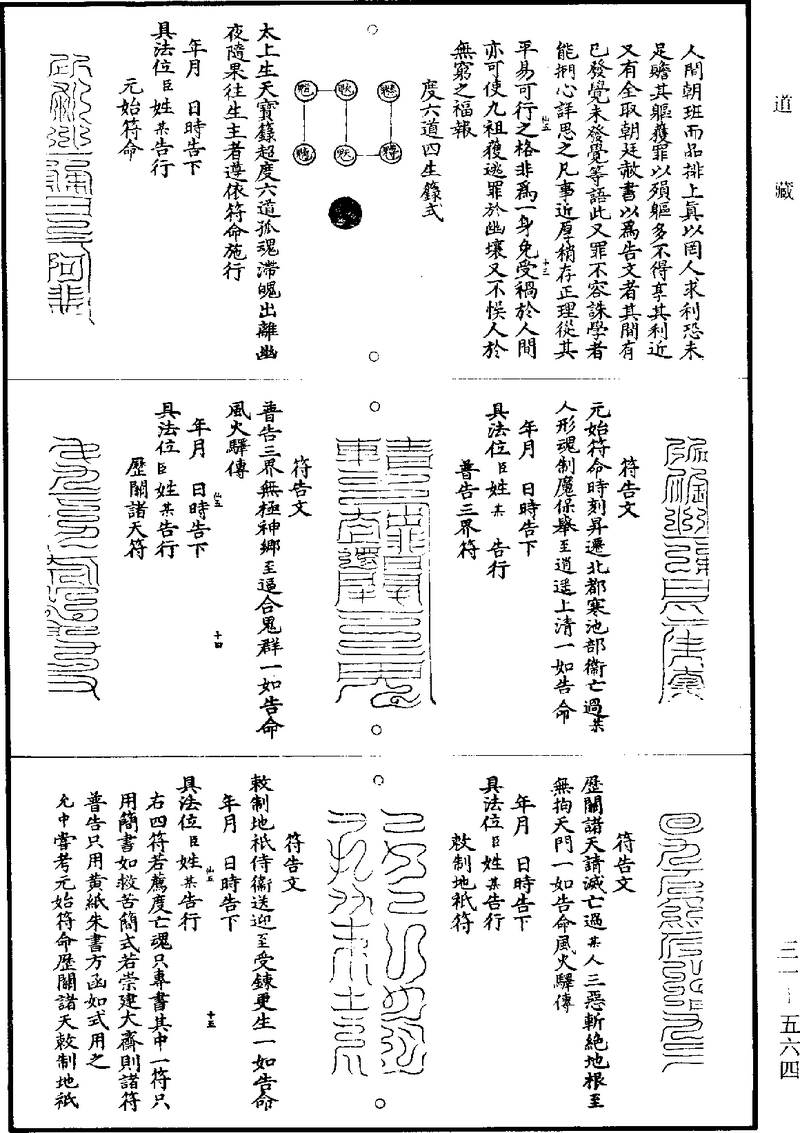 道藏
人間朝班而品排上眞以罔人求利恐未
足贍其軀獲罪以殞軀多不得享其利近
又有全取朝廷赦書以爲告文者其間有
已發覺未發覺等語此又罪不容誅學者
能捫心詳思之凡事近厚稍存正理從其
平易可行之格非爲一身免受禍於人間
亦可使九祖獲逃罪於幽壤又不悞人於
無窮之福報
度六道四生籙式
太上生天寶籙超度六道孤魂滯魄出離幽
夜隨果往生主者遵依符命施行
年月 日時告下
具法位臣姓某告行
元始符命
符告文
元始符命時刻昇遷北都寒池部衞亡過某
人形魂制魔保舉至逍遥上清一如告命
年月 日時告下
具法位臣姓某告行
普告三界符
符告文
普告三界無極神鄉至逼合鬼群一如告命
風火驛傳
年月 日時告下
具法位臣姓某告行
歷關諸天符
十四
符告文
歷關諸天請滅亡過某人三惡斬絶地根至
無拘天門一如告命風火驛傳
年月 日時告下
具法位臣姓某告行
敕制地祇符
符告文
敕制地祇侍衞送迎至受鍊更生一如告命
年月 日時告下
具法位臣姓某告行
十五
右四符若薦度亡魂只專書其中一符只
用簡書如救苦簡式若崇建大齋則諸符
普告只用黄紙朱書方函如式用之
允中嘗考元始符命歷關諸天敕制地祇
三一—五六四